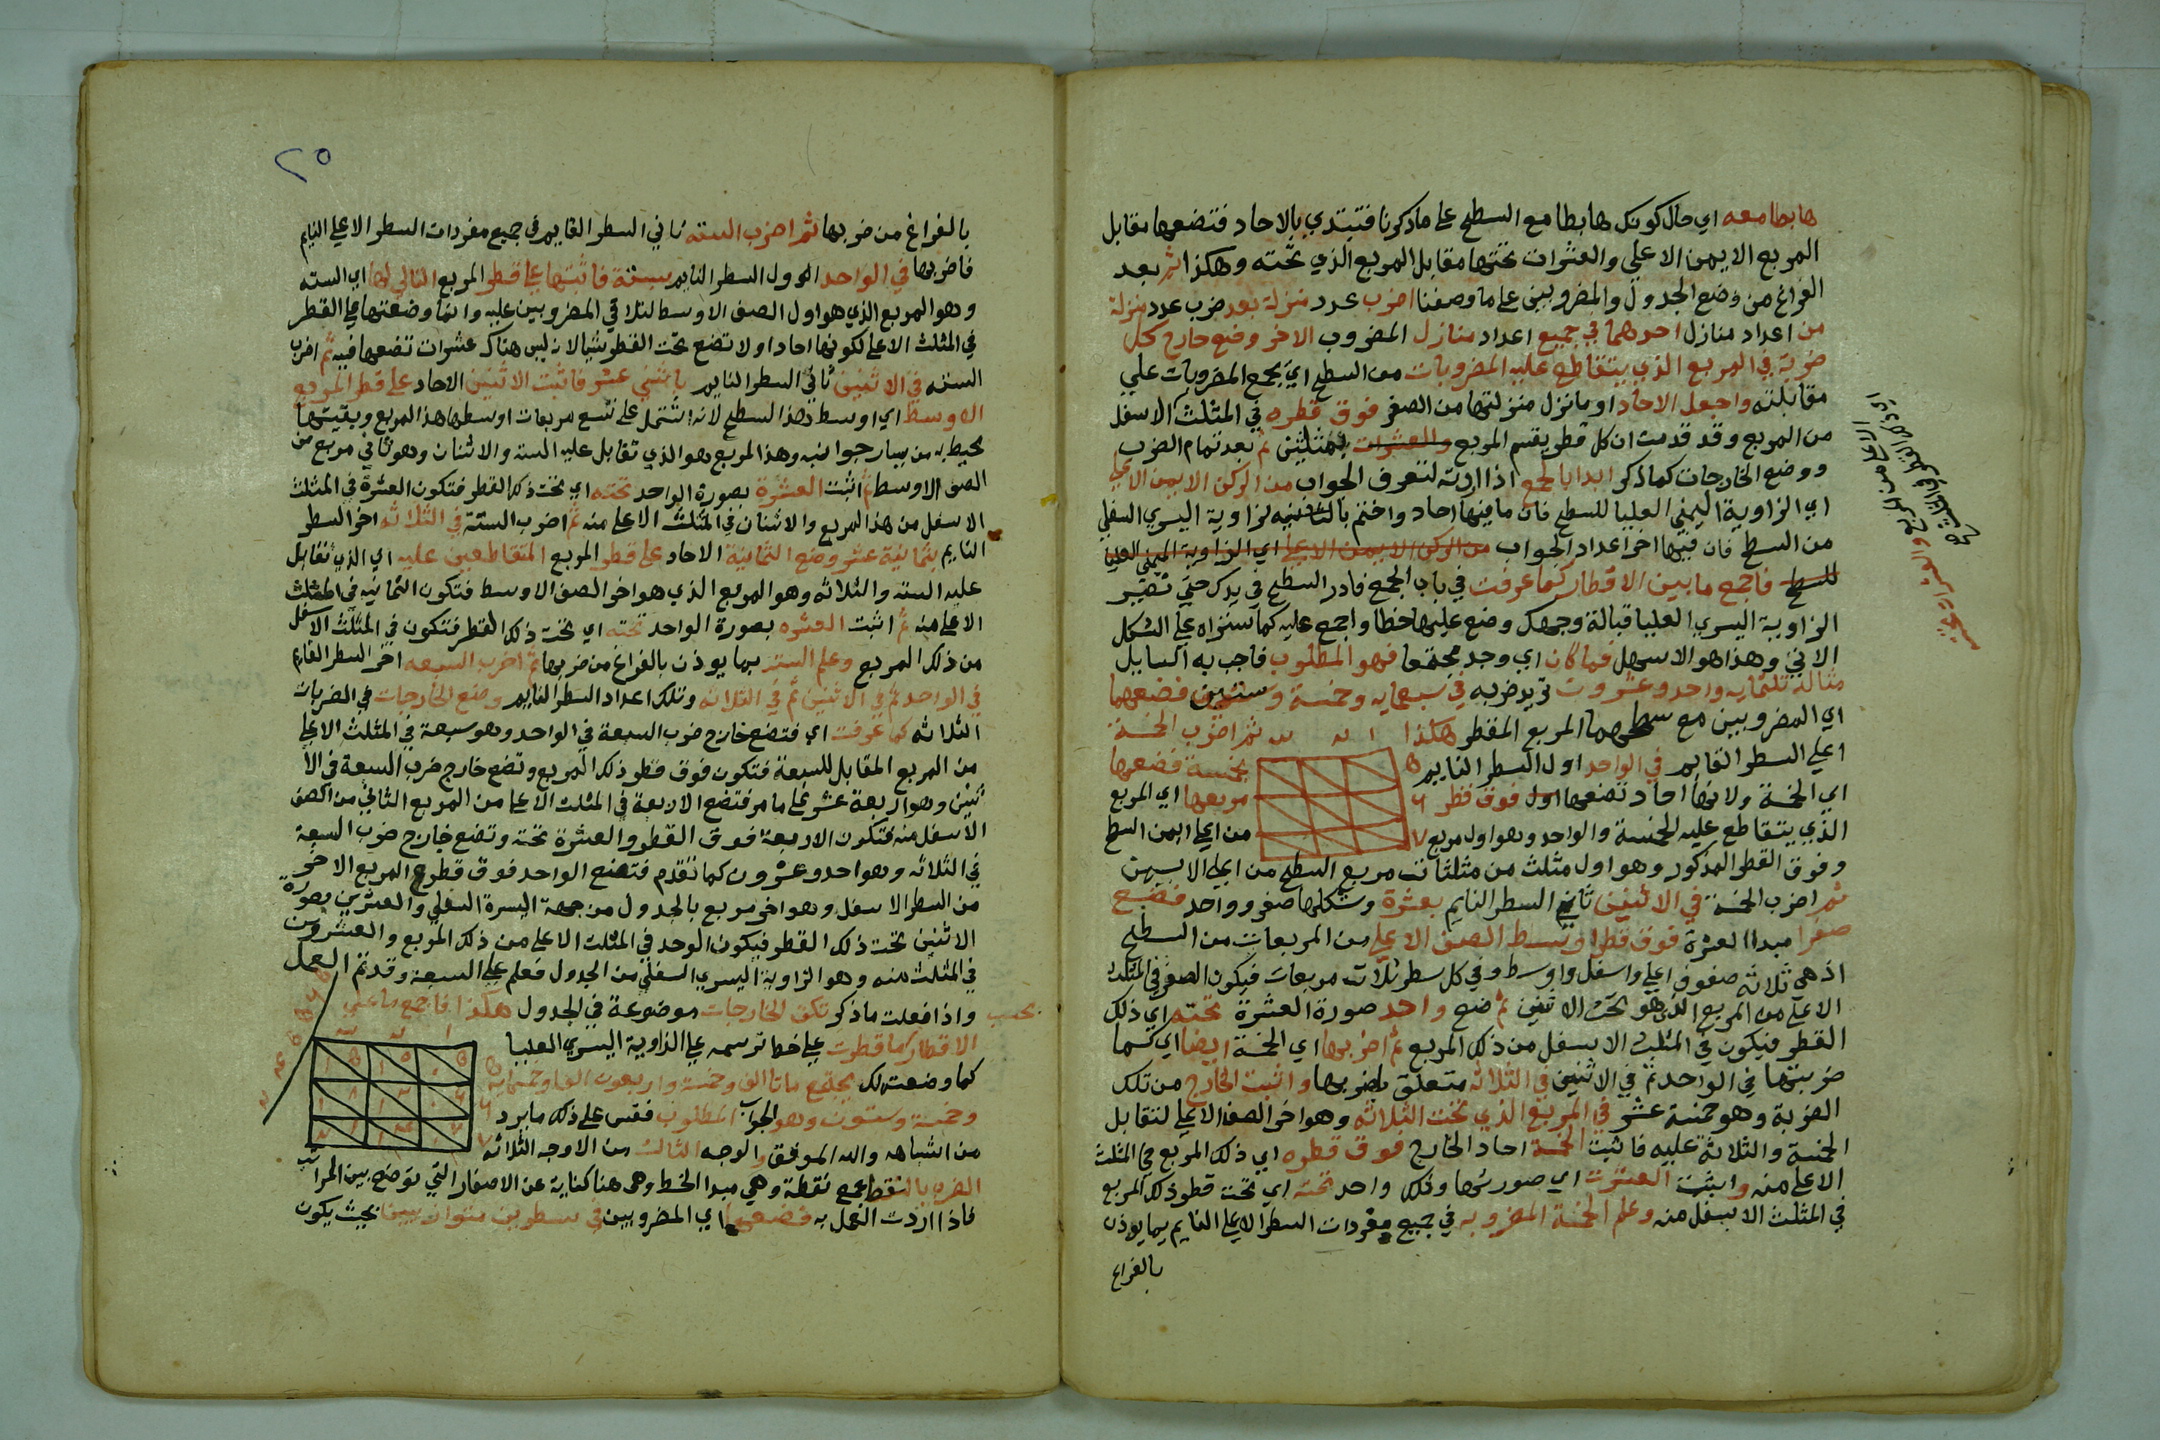 هابطا معه اي حال كونك هابطا مع السطح على ما ذكرنا فتبتدي بالاحاد فتضعها مقابل
المربع الايمن الاعلى والعشرات تحتها مقابل المربع الذي تحته وهكذا ثم بعد
الفراغ من وضع الجدول والمضروبين على ما وصفنا اضرب عدد منزلة بعد ضرب عدد منزلة
من اعداد منازل احدهما في جميع اعداد منازل المضروب الاخر وضع خارج كل
ضربة في المربع الذي يتقاطع عليه المضروبات من السطح اي بجمع المضروبات على
مقابلته واجعل الاحاد او ما نزل منزلتها من الصفر فوق قطره في المثلث الاسفل
من المربع وقد قدمت ان كل قطر يقسم المربع والعشرات بمثلثين ثم بعد تمام الضرب
ووضع الخارجات كما ذكر ابدا بالجمع اذا اردته لتعرف الجواب من الركن الايمن الاعلى
اي الزاوية اليمنى العليا للسطح فان ما فيها احاد واختم بالزاوية اليسرى السفلى
من السطح فان فيها اخر اعداد الجواب من الركن الايمن الاعلى اي الزاوية اليمنى العليا
للسطح فاجمع ما بين الاقطار كما عرفت في باب الجمع فادر السطح في يدك حتى تصير
الزاوية اليسرى العليا قبالة وجهك وضع عليها خطا واجمع عليه كما ستراه على الشكل
الاتي وهذا هو الاسهل فما كان اي وجد مجتمعا فهو المطلوب فاجب به السايل
مثاله ثلثمايه واحد وعشروت تريد ضربه في سبعمايه وخمسة وستين فضعهما
اي المضروبين مع سطحهما المربع المقطر هكذا ١ ٢ ٣ ثم اضرب الخمسة
اعلى السطر القايم في الواحد اول السطر النايم ٥ بخمسة فضعها
اي الخمسة ولانها احاد تضعها اول فوق قطر ٦ مربعها اي المربع
الذي يتقاطع عليه الخمسة والواحد وهو اول مربع ٧ من اعلى ايمن السطح
وفوق القطر المذكور وهو اول مثلث من مثلثات مربع السطح من اعلى الايمن
ثم اضرب الخمسة في الاثنين ثاني السطر النايم بعشرة وشكلها صفر وواحد فضع
صفرا مبدا العشرة فوق قطر اوسط الصف الاعلى من المربعات من السطح
اذ هي ثلاثة صفوف اعلى واسفل واوسط وفي كل سطر ثلاث مربعات فيكون الصفر في المثلث
الاعلى من المربع الذي هو تحت الاثنين ثم ضع واحد صورة العشرة تحته اي ذلك
القطر فيكون في المثلث الاسفل من ذلك المربع ثم اضربها اي الخمسة ايضا اي كما
ضربتها في الواحد ثم في الاثنين في الثلاثه متعلق باضربها واثبت الخارج من تلك
الضربة وهو خمسة عشر في المربع الذي تحت الثلاثه وهو اخر الصف الاعلى لتقابل
الخمسة والثلاثة عليه فاثبت الخمسة احاد الخارج فوق قطره اي ذلك المربع في المثلث
الاعلى منه واثبت العشرت اي صورتها وذلك واحد تحته اي تحت قطر ذلك المربع
في المثلث الاسفل منه وعلم الخمسة المضروبه في جميع مفردات السطر الاعلى النايم بما يوذن
بالفراغ
٢٥
بالفراغ من ضربها ثم اضرب الستة ثاني السطر القايم في جميع مفردات السطر الاعلى النايم
فاضربها في الواحد الاول السطر النايم بستة فاثبتها على قطر المربع التالي لها اي السته
وهو المربع الذي هو اول الصف الاوسط لتلاقي المضروبين عليه وانما وضعتها على القطر
في المثلث الاعلى لكونها احادا ولا تضع تحت القطر شيا لانه ليس هناك عشرات تضعها فيه ثم اضرب
السته في الاثنين ثاني السطر النايم باثني عشر فاثبت الاثنين الاحاد على قطر المربع
الاوسط اي اوسط هذا السطح لانه اشتمل على تسع مربعات اوسطها هذا المربع وبقيتها
محيط به من ساير جوانبه وهذا المربع هو الذي تقابل عليه السته والاثنان وهو ثاني مربع من
الصف الاوسط ثم اثبت العشرة بصورة الواحد تحته اي تحت ذلك القطر فتكون العشرة في المثلث
الاسفل من هذا المربع والاثنان في المثلث الاعلى منه ثم اضرب الستة في الثلاثه اخر السطر
النايم بثمانية عشر وضع الثمانية الاحاد على قطر المربع المتقاطعين عليه اي الذي تقابل
عليه السته والثلاثه وهو المربع الذي هو اخر الصف الاوسط فتكون الثمانيه في المثلث
الاعلى منه ثم اثبت العشره بصورة الواحد تحته اي تحت ذلك القطر فتكون في المثلث الاسفل
من ذلك المربع وعلم الستة بما يوذن بالفراغ من ضربها ثم اضرب السبعه اخر السطر القايم
في الواحد ثم في الاثنين ثم في الثلاثه وتلك اعداد السطر النايم وضع الخارجات في الضربات
الثلاثه كما عرفت اي فتضع خارج ضرب السبعة في الواحد وهو سبعة في المثلث الاعلى
من المربع المقابل للسبعة فتكون فوق قطر ذلك المربع وتضع خارج ضرب السبعة في الا
ثنين وهو اربعة عشر على ما مر فتضع الاربعة في المثلث الاعلى من المربع الثاني من الصف
الاسفل منه فتكون الاربعة فوق القطر والعشرة تحته وتضع خارج ضرب السبعة
في الثلاثه وهو احد وعشرون كما تقدم فتضع الواحد فوق قطر المربع الاخر
من السطر الاسفل وهو اخر مربع بالجدول من جهة اليسرة السفلى والعشرين بصورة
الاثنين تحت ذلك القطر فيكون الوحد في المثلث الاعلى من ذلك المربع والعشرون
في المثلث منه وهو الزاوية اليسرى السفلى من الجدول فعلم على السبعة وقد تم العمل
واذا فعلت ما ذكر تكن الخارجات موضوعة في الجدول هكذا فاجمع ما على
الاقطار كما قطرت على خط ترسمه على الزاوية اليسرى العليا
كما وضعت لك يجتمع ماتا الف وخمسة واربعون الفا وخمسمايه
وخمسة وستون وهو الجواب المطلوب فقس على ذلك ما يرد
من اشباهه والله الموفق والوجه الثالث من الاوجه الثلاثه
الضرب بالنقط جمع نقطة وهي مبدا الخط وهي هنا كناية عن الاصفار التي توضع بين المراتب
فاذا اردت العمل به فضعهما اي المضروبين في سطرين متوازيين بحيث يكون